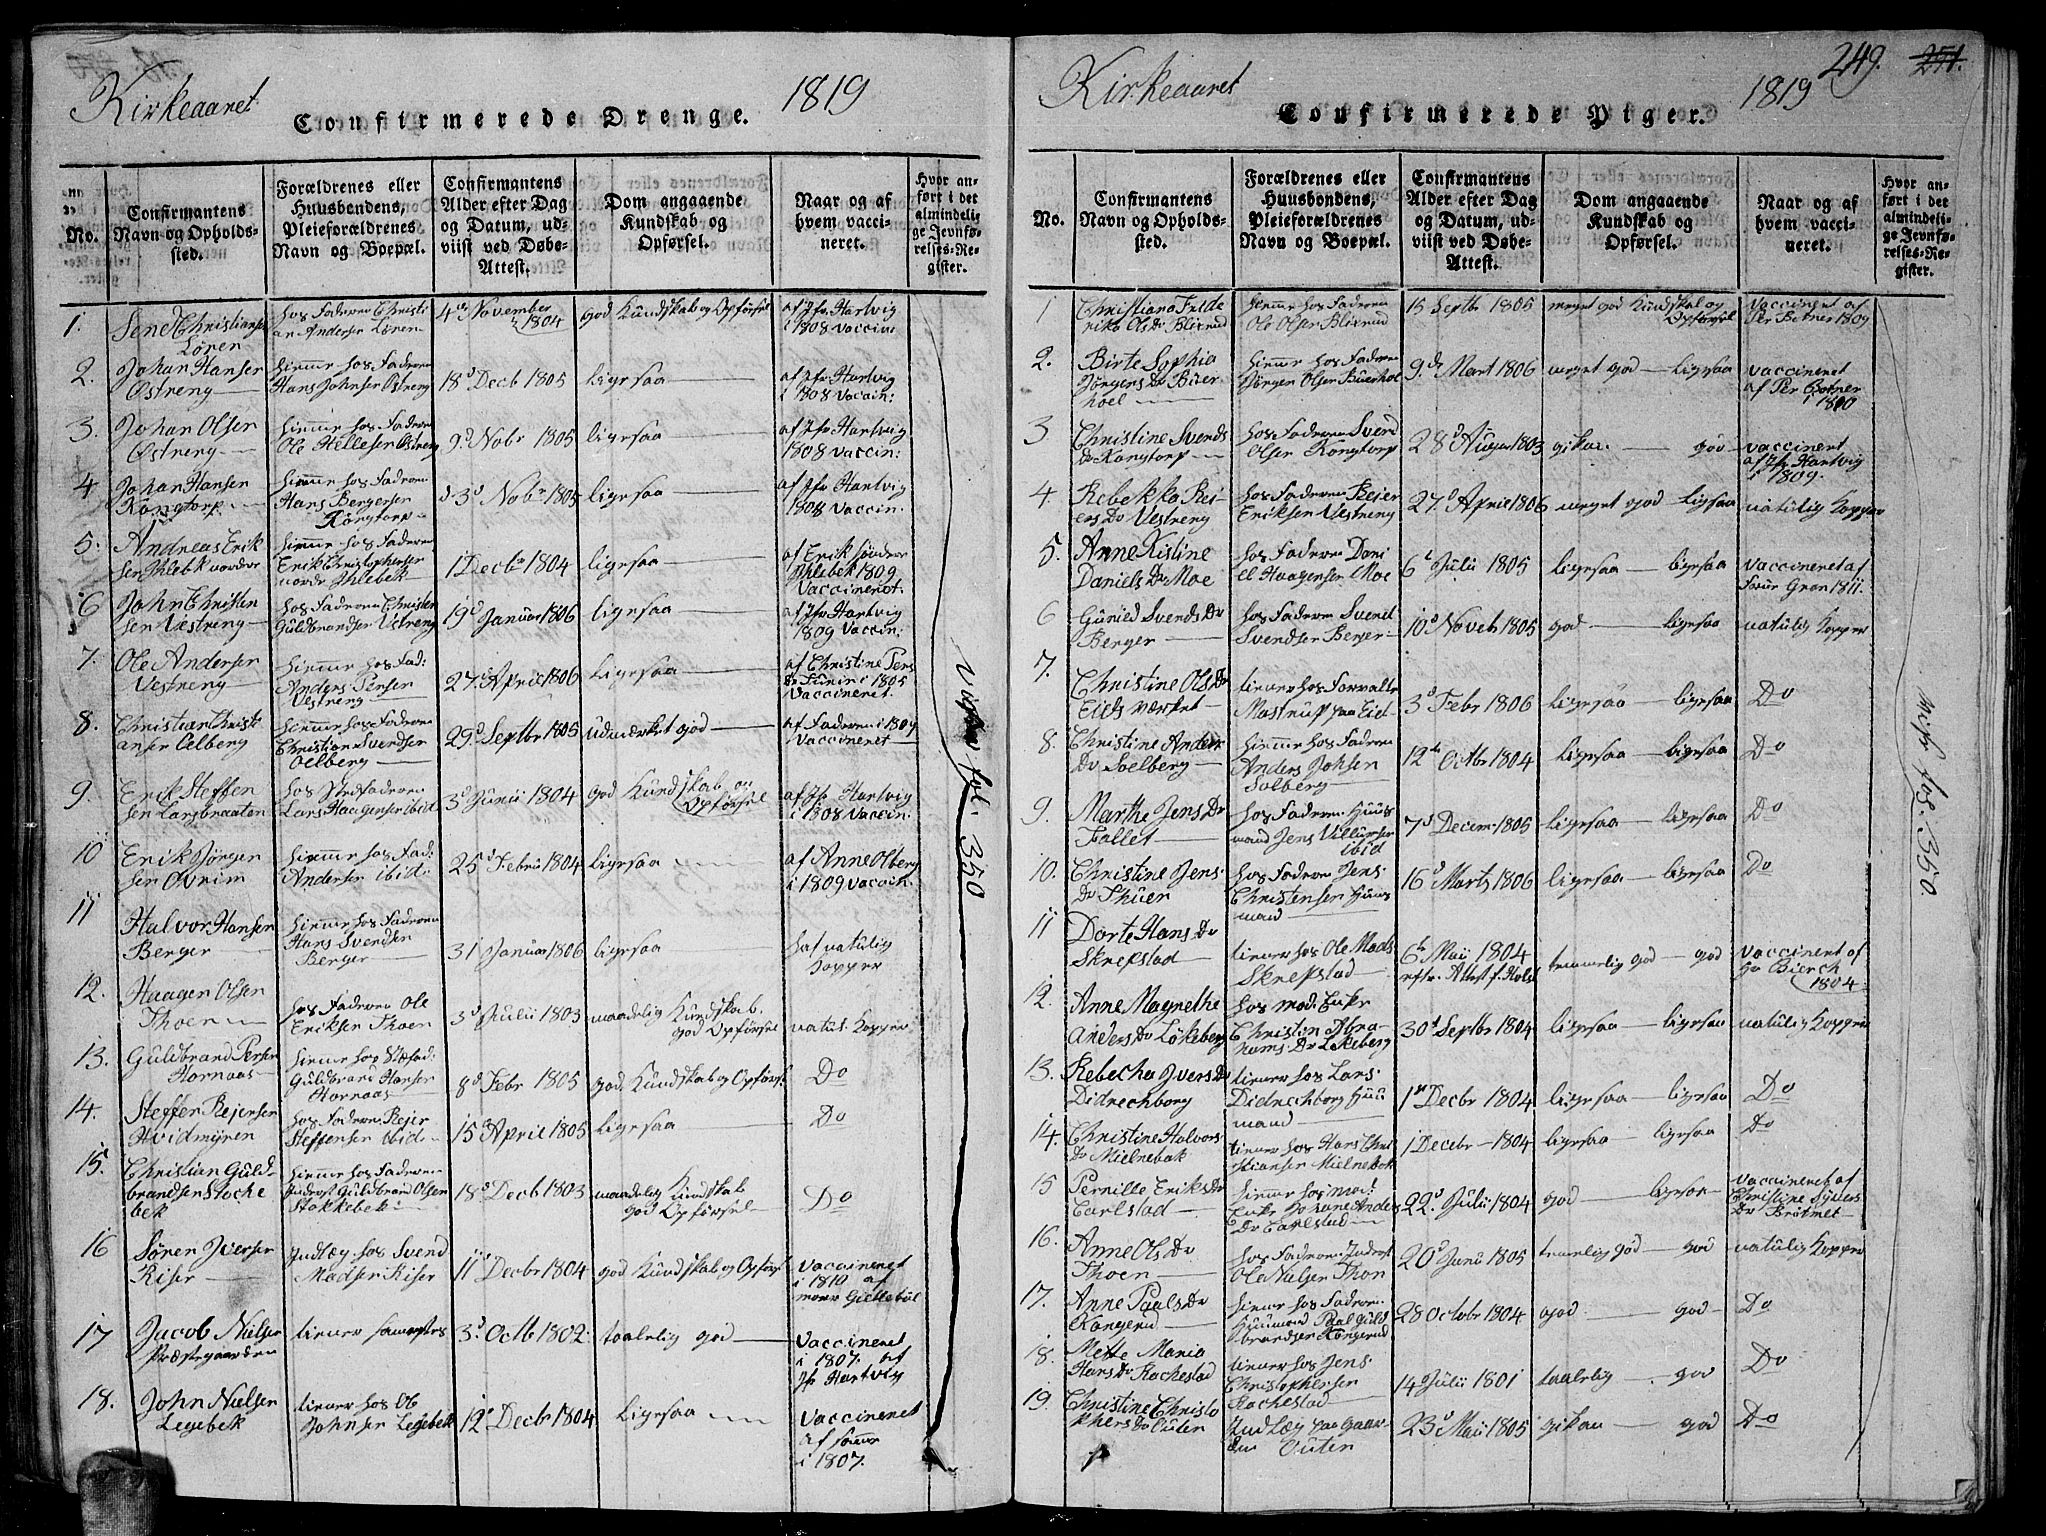 Kirkeaaret
1819
Confirmerede Drenge.
No.
Confirmantens
Navn og Opholds-
sted.
Forældrenes eller
Huusbondens,
Pleieforældrenes
Navn og Boepæl.
Confirmantens
Alder efter Dag
og Datum, ud-
viist ved Døbe-
Attest.
Dom angaaende
Kundskab og
Opførsel.
Naar og af
hvem vacci-
neret.
Hvor an-
ført i det
almindeli-
ge Jevnfø-
relses-Re-
gister.
1.
Christiansen
Løren
hos Faderen Christi
an Andersen Løren
4de November
1804
god Kundskab og Opførsel
af Jfr Hartvig
i 1808 vaccin:
2.
Johan Hansen
Østreng
hiemme hos Faderen
Hans Johnsen Østreng
18d Decb 1805
ligesaa
af Jfr Hartvig
i 1808 vaccin:
3.
Johan Olsen
Østreng
hiemme hos Faderen
Ole Hellesen Østreng
9d Nobr 1805
ligesaa
af Jfr Hartvig
1808 vaccin:
4
Johan Hansen
Kongtorp
hiemme hos Faderen
Hans Bergersen
Kongtorp
3d Nobr 1805
ligesaa
af Jfr Hartvig
1808 vaccin.
5.
Andreas Erik
sen Ihlebek nordre
hiemme hos Faderen
Erik Christophersen
nordr Ihlebek
1 Decbr 1804
ligesaa
af Erik søndre
Ihlebek 1809
vaccineret.
6
John Christen
sen Vestreng
hos Faderen Christen
Guldbrandsen Vestreng
19d Januar 1806
ligesaa
af Jfr Hartvig
1809 vaccin:
7.
Ole Andersen
Vestreng
hiemme hos Fad:
Anders Pensen
Vestreng
27de April 1806
ligesaa
af Christine Pers
i 1805
vaccineret.
8.
Christian Christi
ansen Oelberg
hiemme hos Faderen
Christian Svendsen
Oelberg
29d Septbr 1805
udmærket god
af Faderen i 1809
vaccineret
9.
Erik Steffen
sen Larsbraaten
hos Faderen
Lars Haagensen ibid
3d Junii 1804
god Kundskab og
Opførsel
af Jfr Hartvig
i 1808 vaccin.
10
Erik Jørgen
sen Ovrim
hiemme hos Fad:
Andersen ibid:
25d Febru 1804
ligesaa
af Anne Olberg
i 1809 vaccin.
11
Halvor Hansen
Berger
hiemme hos Faderen
Hans Svendsen
Berger
31 Januar 1806
ligesaa
haf natulig
Kopper
12.
Haagen Olsen
Thoen
hos Faderen Ole
Eriksen Thoen
3d Julii 1803
maadelig Kundskab
god Opførsel
natul. Kopper
13.
Guldbrand Persen
Hornaas
hiemme hos Stæfad:
Guldbrand Hansen
Hornaas
8d Febr 1805
god Kundskab og Opførs
Do
14.
Steffen Rejersen
Hvidmÿren
hos Faderen Rejer
Steffensen ibid
15 April 1805
ligesaa
Do
15.
Christian Guld-
brandsen Stocke
bek
hiemme hos Faderen
Inderst Guldbrand Olsen
Stokkebek
18d Decb 1803
maadelig Kundskab
god Opførsel
Do
16
Sören Iversen
Riser
Indlæg: hos Svend
Madsen Riser
11d Decbr 1804
god Kundskab og Opførs
vaccineret
i 1810 af
Giellebøl
17
Jacob Nielsen
Præstegaarden
tiener
3d Octb 1802
taalelig god
vaccineret
i 1807 af
Jfr Hartvig
18.
John Nielsen
Legebek
tiener hos Ol
Johnsen Legebek
12d Decbr 1804
ligesaa
vaccineret
af samme
i 1807.
fol. 350
Kirkeaaret
1819
249.
251.
Confirmerede Piger.
No.
Confirmantens
Navn og Opholds-
sted.
Forældrenes eller
Huusbondens,
Pleieforældrenes
Navn og Boepæl.
Confirmantens
Alder efter Dag
og Datum, ud-
viist ved Døbe-
Attest.
Dom angaaende
Kundskab og
Opførsel.
Naar og af
hvem vacci-
neret.
Hvor an-
ført i det
almindeli-
ge Jevnfø-
relses-Re-
gister.
1
Christiana Frede
rike Ols Dr Blixrud
hiemme hos Faderen
Ole Olsen Blixrud
15 Septbr 1805
meget god Kundskab og
Opførsel
vaccineret af
Per Botner 1809
2.
Birte Sophia
Jörgens Dr Buer
hoel
hiemme hos Faderen
Jörgen Olsen Buerhol
9d Mart 1806
meget god ligesaa
vaccineret
af Per Botner
i 1810
3
Christine Svends
Dr Kongtorp
hos Faderen Svend
Olsen Kongtorp
28d August 1803
god
vaccineret
af Jfr Hartvig
i 1809.
4
Rebekka Rei
ers Dr Vestreng
hos Faderen Reier
Eriksen Vestreng
27d April 1806
meget god ligesaa
natulig Kopper
5.
Anne Kistine
Daniels Dr Moe
hos Faderen Dani
el Haagensen Moe
6d Julii 1805
ligesaa ligesaa
vaccineret af
Gran 1811.
6
Gunild Svends Dr
Berger
hos Faderen Svend
Svendsen Berger
10d Noveb 1805
god ligesaa
natulig Kopper
7.
Christine Ols Dr
Eids værket
tiener hos Forvalte
Mostrup paa Eid
3d Febr 1806
ligesaa ligesaa
Do
8.
Christine Anders
Dr Soelberg
hiemme hos Faderen
Anders Johsen
Solberg
12te Octbr 1804
ligesaa ligesaa
Do
9.
Marthe Jens Dr
Tollet
hos Faderen Huus
mand Jens Villumsen
ibid
7d Decem 1805
ligesaa ligesaa
Do
10.
Christine Jens
Dr Thuer
hos Faderen Jens
Christensen Huus
mand
16d Marts 1806
ligesaa ligesaa
Do
11
Dorte Hans Dr
Skrepstad
tiener hos Ole Mads
Skrepstad
6te Maii 1804
eftr. Attest f. Hols
temmelig god god
vaccineret af
Hr Bierch
1804
12.
Anne Magnethe
Anders Dr Lökeberg
hos mod: Enke
Christin Abra
hams Dr Lökeberg
30d Septbr 1804
ligesaa ligesaa
natulig Kopper
13.
Rebecha Ivers Dr
Didrechborg
tiener hos Lars
Didrechborg Huu
mand
1ste Decbr 1804
ligesaa ligesaa
Do
14.
Christine Halvors
Dr Mielnebak
tiener hos Hans Chri
stiansen Mielnebak
1 Decebr 1804
ligesaa ligesaa
Do
15
Pernille Eriks Dr
Carlstad
hiemme hos mod:
Enke Johane Anders
Dr Carlstad
22d Julii 1804
god ligesaa
vaccineret af
Christine Syvers
Dr Bråtmet
16.
Anne Ols Dr
Thoen
hos Faderen Inderst
Ole Nielsen Thon
20d Junii 1805
temelig god god
natulig Kopper
17.
Anne Paals Dr
Kongerud
hiemme hos Faderen
Huusmand Paal Guld
brandsen Kongerud
28 Octobr 1804
god god
Do
18.
Mette Maria
Hans Dr Rachestad
tiener hos Jens
Christophersen
Rachestad
14 Julii 1801
taalelig god
Do
19.
Christine Christo
phers Dr Outen
Indlæg paa Gaar
den Outen
23d Maii 1805
god
Do
350.